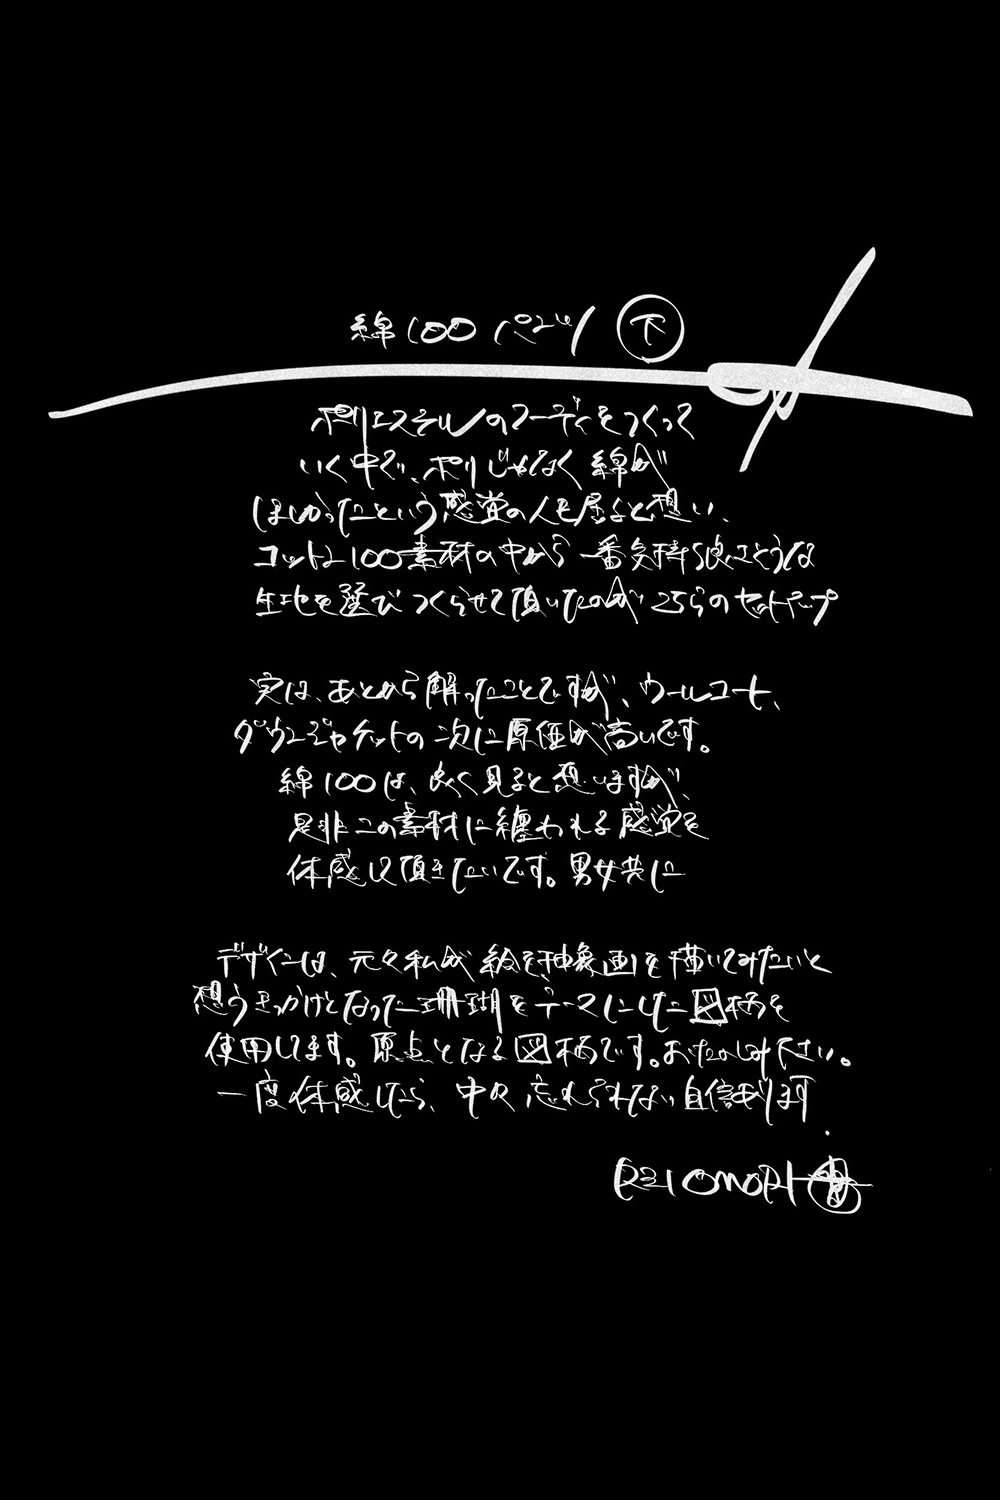 綿100 パンツ 下
ポリエステルのフーディをつくって
いく中で、ポリじゃなく綿が
ほしかったという感覚の人も居ると想い、
コットン100素材の中から一番気持ち良さそうな
生地を選びつくらせて頂いたのがこちらのセットアップ
実は、あとから解ったことですが、ウールコート、
ダウンジャケットの次に原価が高いです。
綿100は、良く見ると思いますが、
是非この素材に纏われる感覚を
体感して頂きたいです。男女共に
デザインは、元々私が絵を抽象画を描いてみたいと
想うきっかけとなった珊瑚をテーマにした図柄を
使用してます。原点となる図柄です。おたのしみ下さい。
一度体感したら、中々忘れられない自信あります.
REI OMORI